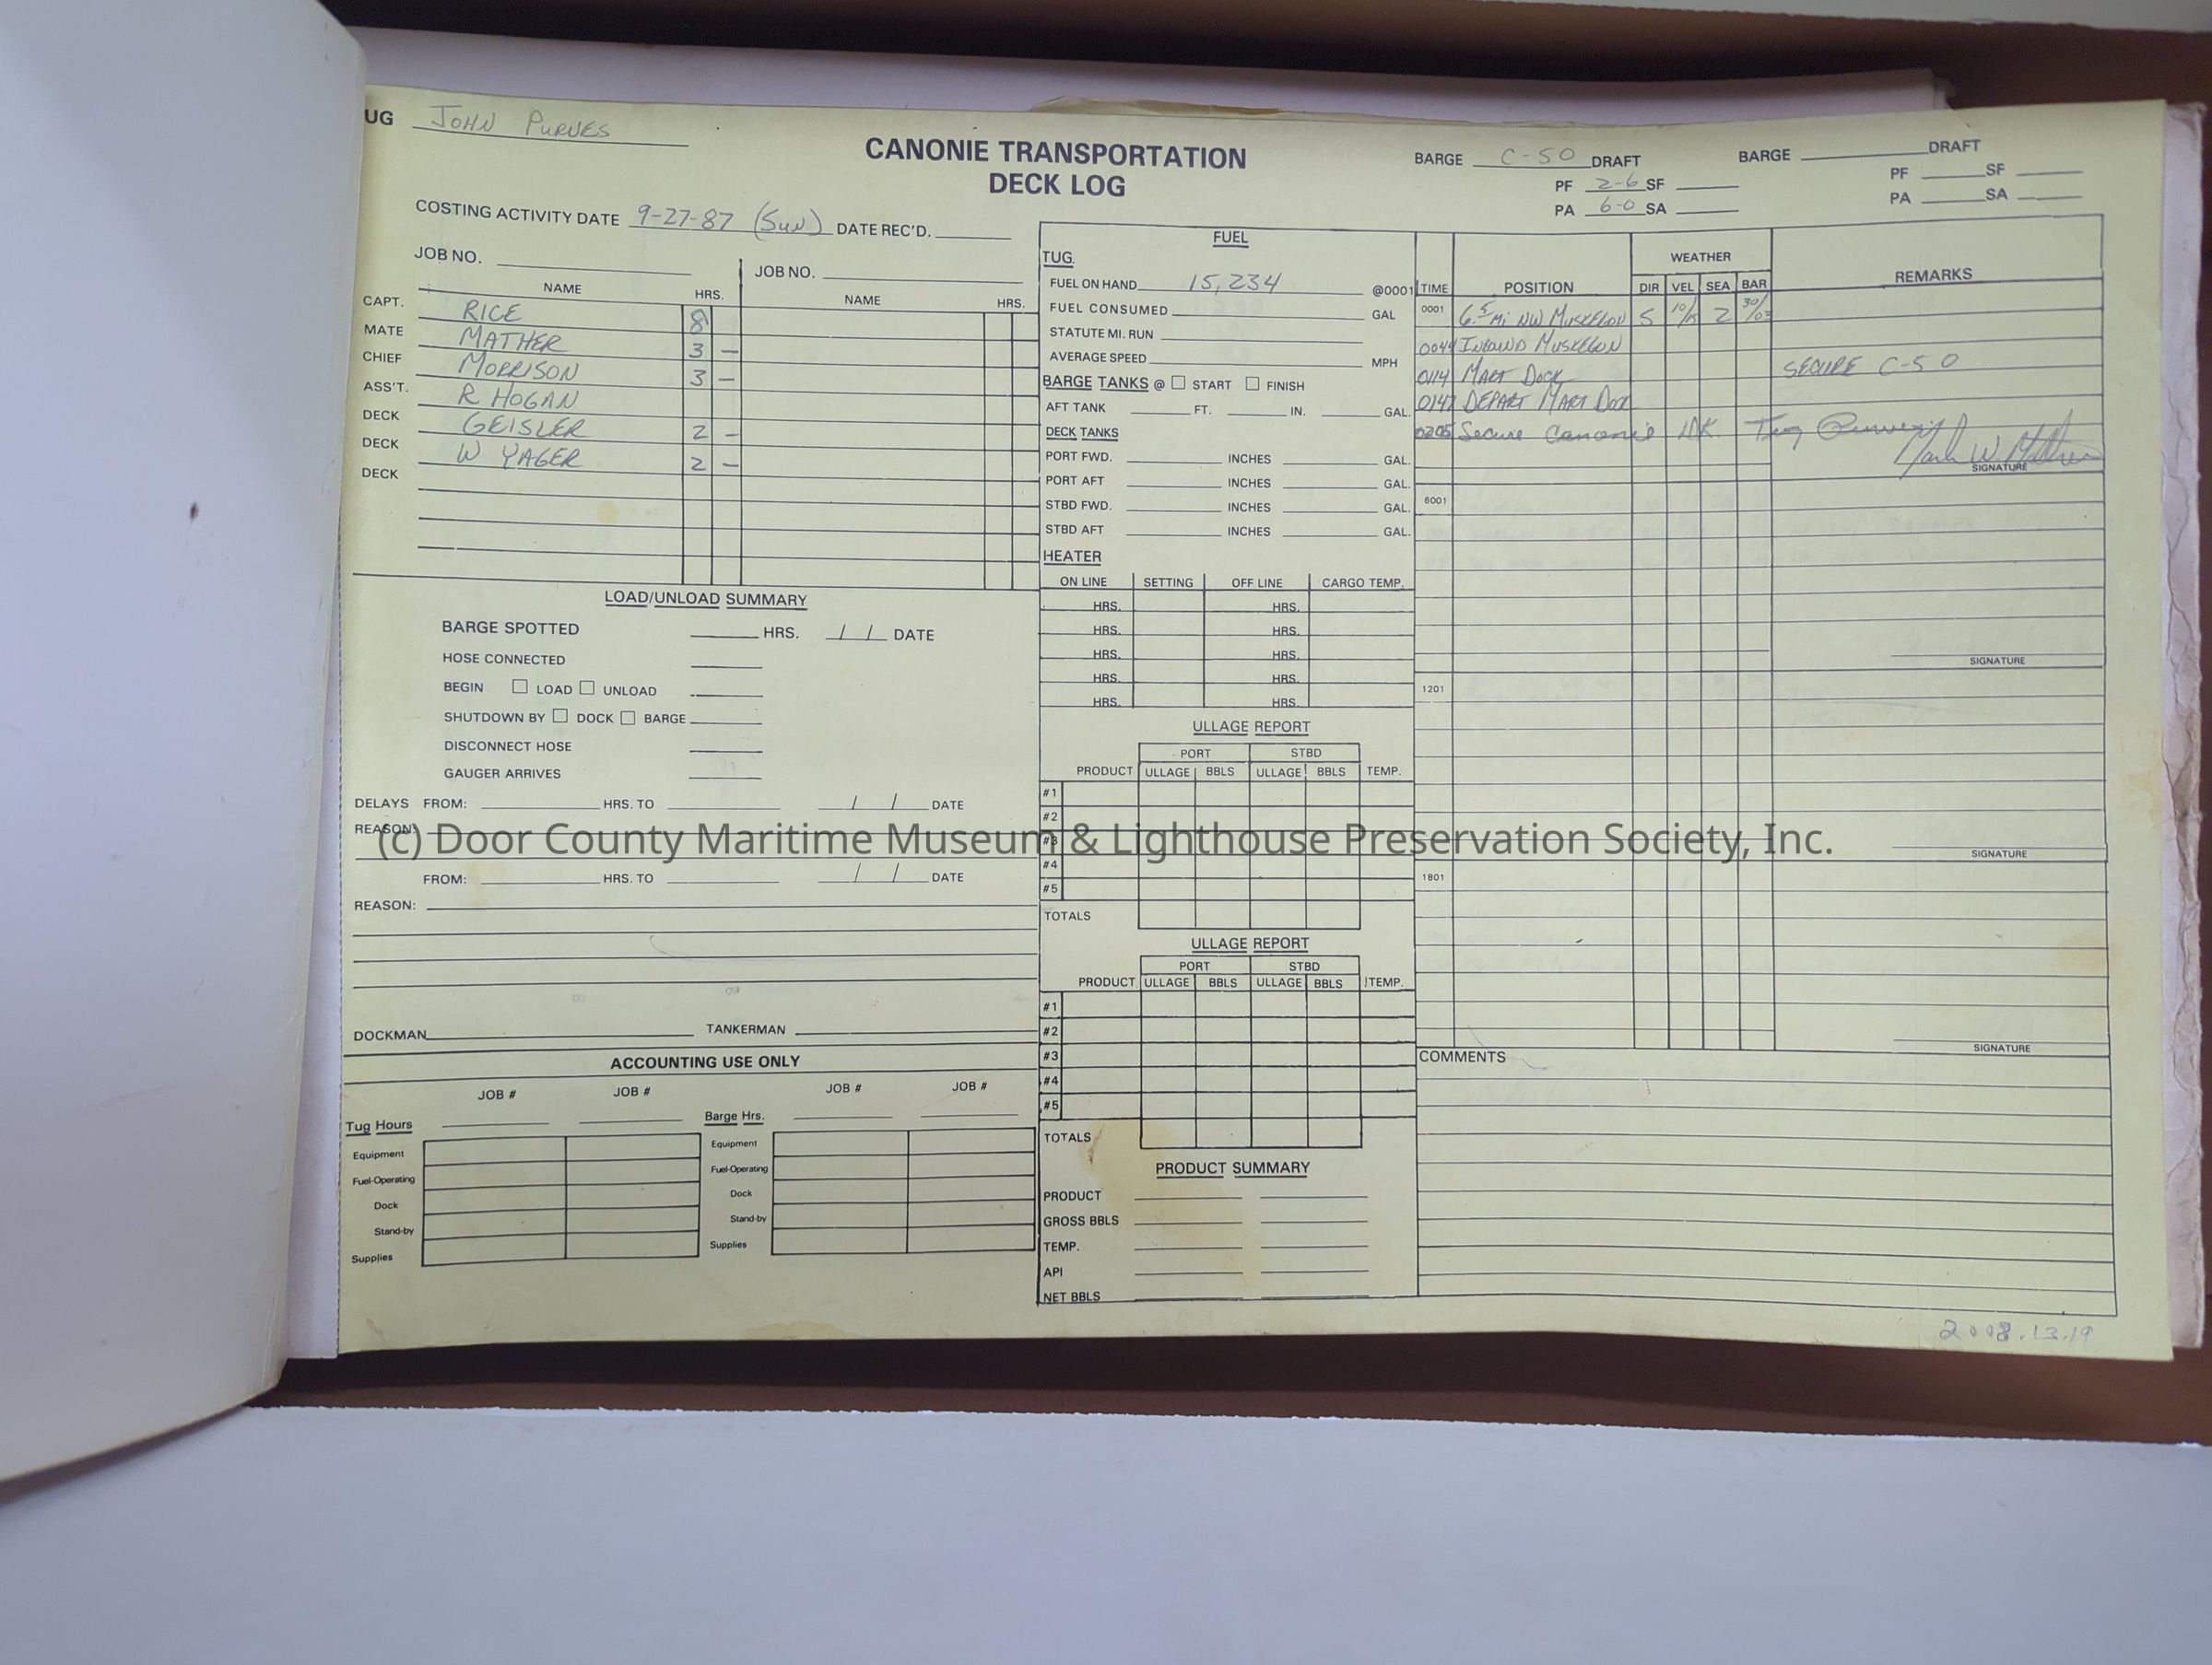 UG JOHN PURVES
CANONIE TRANSPORTATION
DECK LOG
BARGE C-50 DRAFT
PF 2-6 SF
PA 6-0 SA
BARGE DRAFT
PF SF
PA SA
COSTING ACTIVITY DATE 9-27-87 (SUN) DATE REC'D.
JOB NO. JOB NO.
NAME HRS. NAME HRS.
CAPT. RICE 8
MATE MATHER 3 –
CHIEF MORRISON 3 –
ASS'T. R HOGAN
DECK GEISLER 2 –
DECK W YAGER 2 –
DECK
LOAD/UNLOAD SUMMARY
BARGE SPOTTED HRS. / / DATE
HOSE CONNECTED
BEGIN ☐ LOAD ☐ UNLOAD
SHUTDOWN BY ☐ DOCK ☐ BARGE
DISCONNECT HOSE
GAUGER ARRIVES
DELAYS FROM: HRS. TO / / DATE
REASON:
FROM: HRS. TO / / DATE
REASON:
DOCKMAN TANKERMAN
ACCOUNTING USE ONLY
JOB # JOB # JOB # JOB #
Tug Hours Barge Hrs.
Equipment Equipment
Fuel-Operating Fuel-Operating
Dock Dock
Stand-by Stand-by
Supplies Supplies
FUEL
TUG
FUEL ON HAND 15,234 @0001
FUEL CONSUMED GAL
STATUTE MI. RUN
AVERAGE SPEED MPH
BARGE TANKS @ ☐ START ☐ FINISH
AFT TANK FT. IN. GAL.
DECK TANKS
PORT FWD. INCHES GAL.
PORT AFT INCHES GAL.
STBD FWD. INCHES GAL.
STBD AFT INCHES GAL.
HEATER
ON LINE SETTING OFF LINE CARGO TEMP.
HRS. HRS.
HRS. HRS.
HRS. HRS.
HRS. HRS.
HRS. HRS.
ULLAGE REPORT
PORT STBD
PRODUCT ULLAGE BBLS ULLAGE BBLS TEMP.
#1
#2
#3
#4
#5
TOTALS
ULLAGE REPORT
PORT STBD
PRODUCT ULLAGE BBLS ULLAGE BBLS TEMP.
#1
#2
#3
#4
#5
TOTALS
PRODUCT SUMMARY
PRODUCT
GROSS BBLS
TEMP.
API
NET BBLS
WEATHER
TIME POSITION DIR VEL SEA BAR REMARKS
0001 6.5 MI NW MUSKEGON S 10/15 2 30/03
0044 INBOUND MUSKEGON
0114 MART DOCK SECURE C-50
0147 DEPART MART DOCK
0205 Secure Canonie DK. Tug Purves
Mark W. Mather
SIGNATURE
6001
SIGNATURE
1201
SIGNATURE
1801
SIGNATURE
COMMENTS
2008.13.19
(c) Door County Maritime Museum & Lighthouse Preservation Society, Inc.